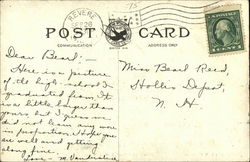 REVERE
POST CARD
COMMUNICATION
ADDRESS ONLY
Dear Beard:-
Here is a picture
of the high-school I
graduated from. It
was little larger than
yours but I guess we
did not learn any more
in proportion. Hope you
are well and getting
along fine.
Miss Bearl Reed,
Hollis Depot,
N. H.